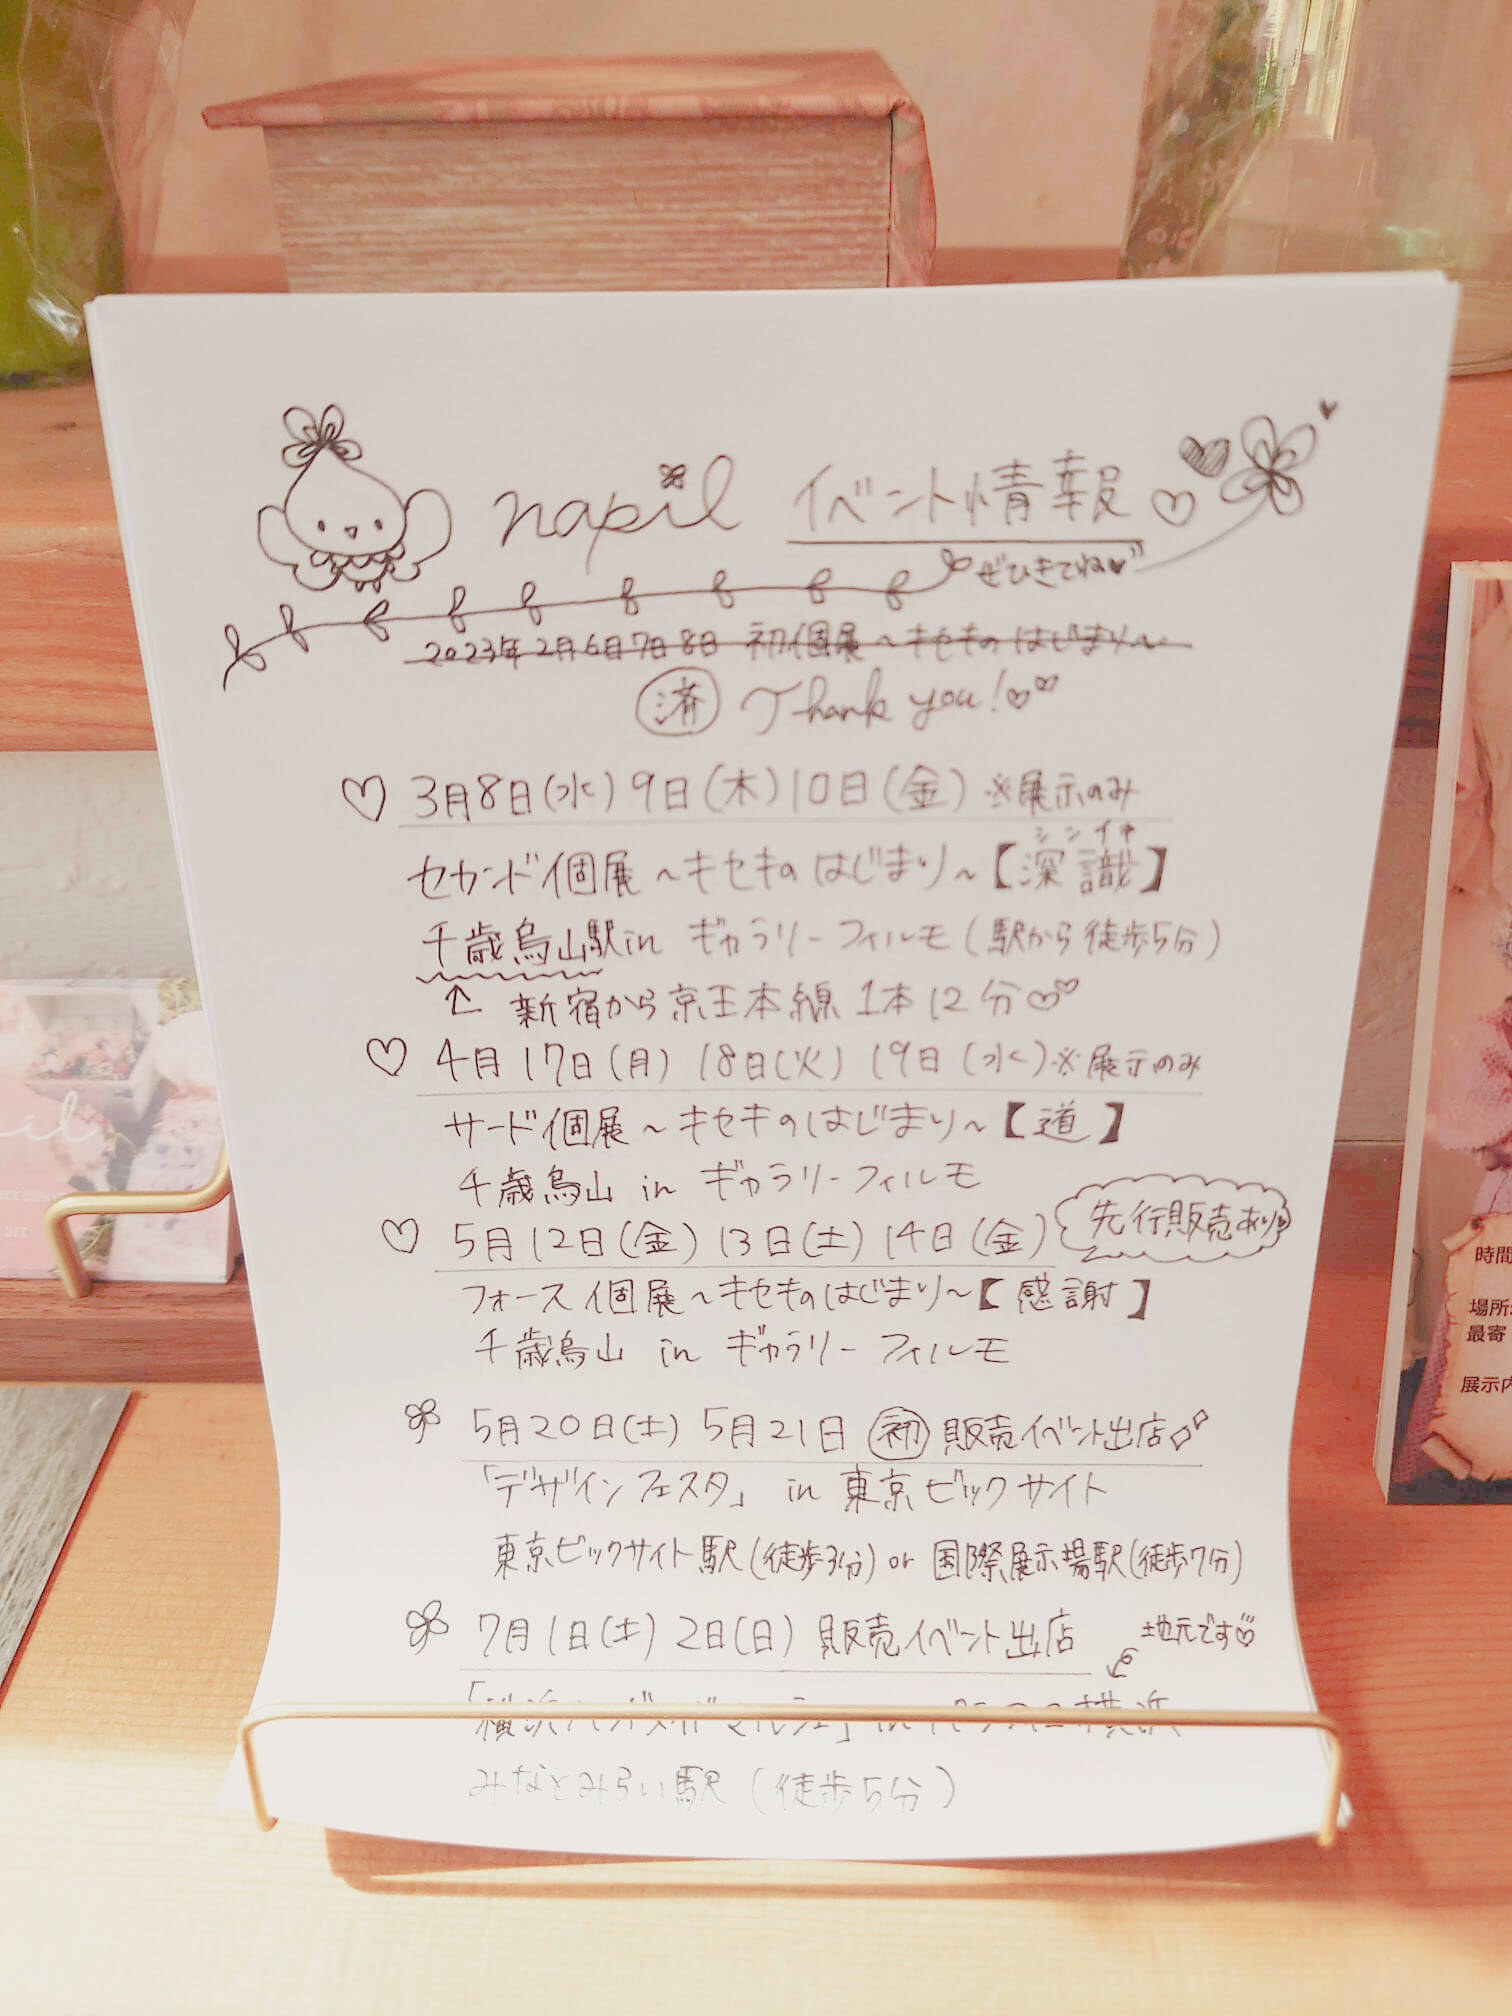 napil イベント情報
ぜひきてね
2023年2月6日7日8日 初個展～キセキのはじまり～
済 Thank you!
3月8日(水)9日(木)10日(金)※展示のみ
シンイキ
セカンド個展～キセキのはじまり～【深識】
千歳烏山駅in ギャラリーフィルモ(駅から徒歩5分)
↑ 新宿から京王本線1本12分
4月17日(月) 18日(火) 19日(水)※展示のみ
サード個展～キセキのはじまり～【道】
千歳烏山 in ギャラリーフィルモ
5月12日(金) 13日(土) 14日(金) 先行販売あり
フォース個展～キセキのはじまり～【感謝】
千歳烏山 in ギャラリーフィルモ
5月20日(土) 5月21日 初 販売イベント出店
「デザインフェスタ」 in 東京ビックサイト
東京ビックサイト駅(徒歩3分) or 国際展示場駅(徒歩7分)
7月1日(土) 2日(日) 販売イベント出店 地元です
みなとみらい駅(徒歩5分)
時間
場所
最寄
展示内